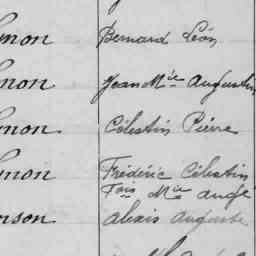 mon Bernard Léon
mon Jean Mie Augustin
mon Célestin Pierre
mon Frédéric Célestin
Fois Mie ange
nson Alexis Auguste